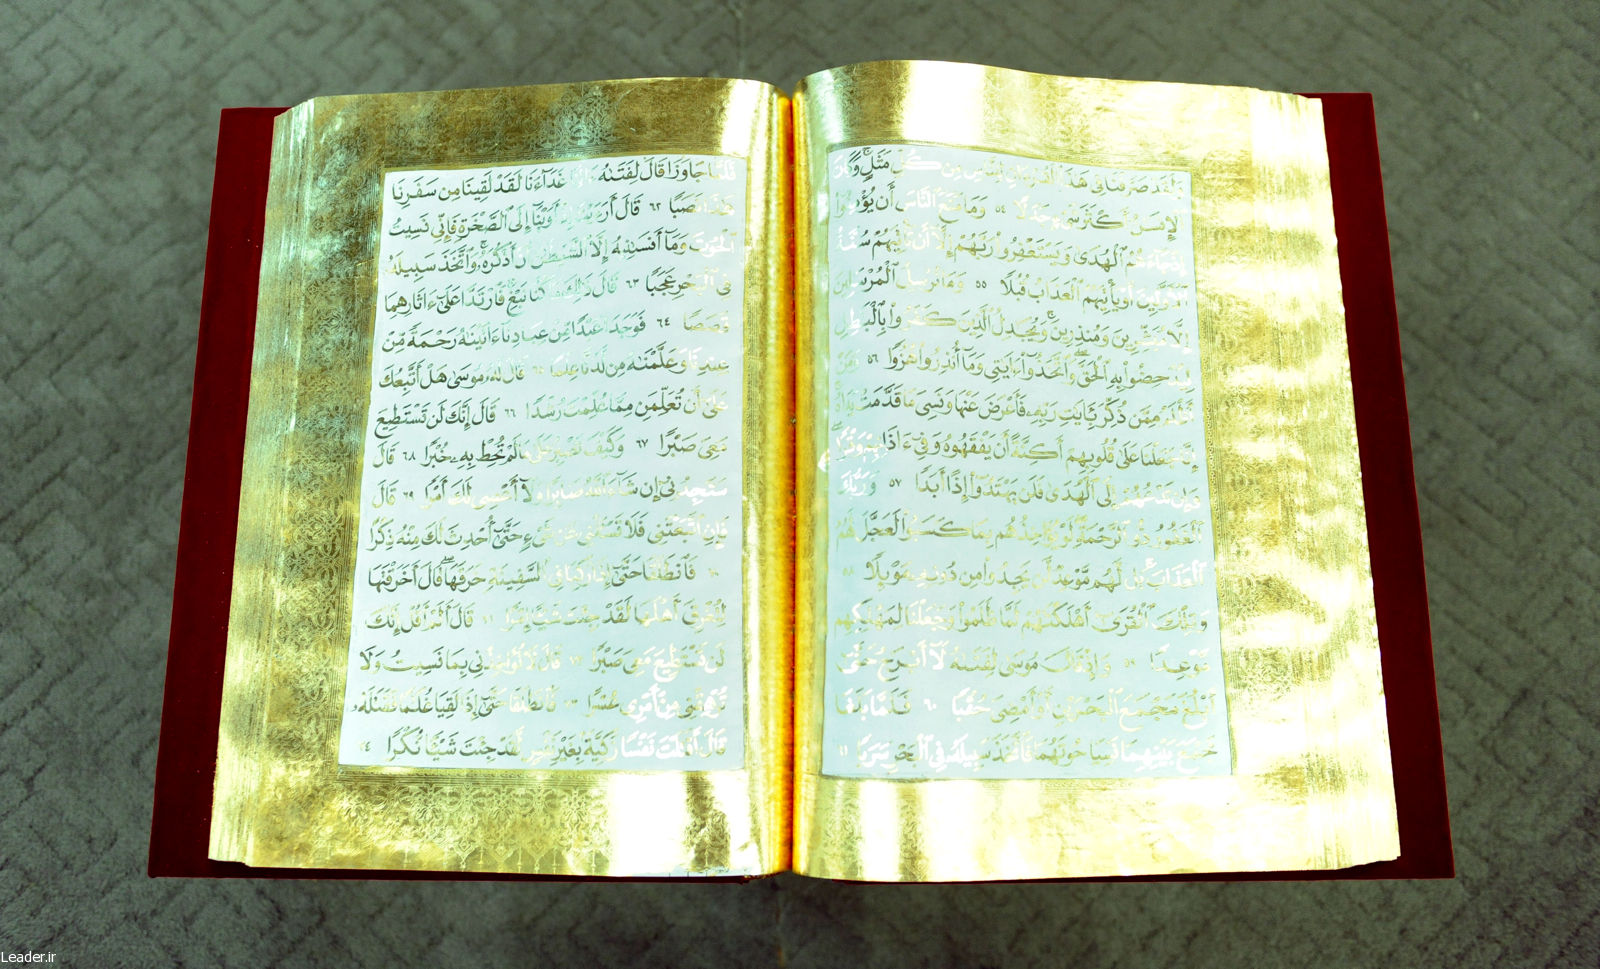 وَلَقَدْ صَرَّفْنَا فِى هَٰذَا ٱلْقُرْءَانِ لِلنَّاسِ مِن كُلِّ مَثَلٍ ۚ وَكَانَ
ٱلْإِنسَٰنُ أَكْثَرَ شَىْءٍ جَدَلًا ٥٤ وَمَا مَنَعَ ٱلنَّاسَ أَن يُؤْمِنُوٓا۟
إِذْ جَآءَهُمُ ٱلْهُدَىٰ وَيَسْتَغْفِرُوا۟ رَبَّهُمْ إِلَّآ أَن تَأْتِيَهُمْ سُنَّةُ
ٱلْأَوَّلِينَ أَوْ يَأْتِيَهُمُ ٱلْعَذَابُ قُبُلًا ٥٥ وَمَا نُرْسِلُ ٱلْمُرْسَلِينَ
إِلَّا مُبَشِّرِينَ وَمُنذِرِينَ ۚ وَيُجَٰدِلُ ٱلَّذِينَ كَفَرُوا۟ بِٱلْبَٰطِلِ
لِيُدْحِضُوا۟ بِهِ ٱلْحَقَّ ۖ وَٱتَّخَذُوٓا۟ ءَايَٰتِى وَمَآ أُنذِرُوا۟ هُزُوًا ٥٦ وَمَنْ
أَظْلَمُ مِمَّن ذُكِّرَ بِـَٔايَٰتِ رَبِّهِۦ فَأَعْرَضَ عَنْهَا وَنَسِىَ مَا قَدَّمَتْ يَدَاهُ ۚ
إِنَّا جَعَلْنَا عَلَىٰ قُلُوبِهِمْ أَكِنَّةً أَن يَفْقَهُوهُ وَفِىٓ ءَاذَانِهِمْ وَقْرًا ۖ
وَإِن تَدْعُهُمْ إِلَى ٱلْهُدَىٰ فَلَن يَهْتَدُوٓا۟ إِذًا أَبَدًا ٥٧ وَرَبُّكَ
ٱلْغَفُورُ ذُو ٱلرَّحْمَةِ ۖ لَوْ يُؤَاخِذُهُم بِمَا كَسَبُوا۟ لَعَجَّلَ لَهُمُ
ٱلْعَذَابَ ۚ بَل لَّهُم مَّوْعِدٌ لَّن يَجِدُوا۟ مِن دُونِهِۦ مَوْئِلًا ٥٨
وَتِلْكَ ٱلْقُرَىٰٓ أَهْلَكْنَٰهُمْ لَمَّا ظَلَمُوا۟ وَجَعَلْنَا لِمَهْلِكِهِم
مَّوْعِدًا ٥٩ وَإِذْ قَالَ مُوسَىٰ لِفَتَىٰهُ لَآ أَبْرَحُ حَتَّىٰٓ
أَبْلُغَ مَجْمَعَ ٱلْبَحْرَيْنِ أَوْ أَمْضِىَ حُقُبًا ٦٠ فَلَمَّا بَلَغَا
مَجْمَعَ بَيْنِهِمَا نَسِيَا حُوتَهُمَا فَٱتَّخَذَ سَبِيلَهُۥ فِى ٱلْبَحْرِ سَرَبًا ٦١
فَلَمَّا جَاوَزَا قَالَ لِفَتَىٰهُ ءَاتِنَا غَدَآءَنَا لَقَدْ لَقِينَا مِن سَفَرِنَا
هَٰذَا نَصَبًا ٦٢ قَالَ أَرَءَيْتَ إِذْ أَوَيْنَآ إِلَى ٱلصَّخْرَةِ فَإِنِّى نَسِيتُ
ٱلْحُوتَ وَمَآ أَنسَىٰنِيهُ إِلَّا ٱلشَّيْطَٰنُ أَنْ أَذْكُرَهُۥ ۚ وَٱتَّخَذَ سَبِيلَهُۥ
فِى ٱلْبَحْرِ عَجَبًا ٦٣ قَالَ ذَٰلِكَ مَا كُنَّا نَبْغِ ۚ فَٱرْتَدَّا عَلَىٰٓ ءَاثَارِهِمَا
قَصَصًا ٦٤ فَوَجَدَا عَبْدًا مِّنْ عِبَادِنَآ ءَاتَيْنَٰهُ رَحْمَةً مِّنْ
عِندِنَا وَعَلَّمْنَٰهُ مِن لَّدُنَّا عِلْمًا ٦٥ قَالَ لَهُۥ مُوسَىٰ هَلْ أَتَّبِعُكَ
عَلَىٰٓ أَن تُعَلِّمَنِ مِمَّا عُلِّمْتَ رُشْدًا ٦٦ قَالَ إِنَّكَ لَن تَسْتَطِيعَ
مَعِىَ صَبْرًا ٦٧ وَكَيْفَ تَصْبِرُ عَلَىٰ مَا لَمْ تُحِطْ بِهِۦ خُبْرًا ٦٨ قَالَ
سَتَجِدُنِىٓ إِن شَآءَ ٱللَّهُ صَابِرًا وَلَآ أَعْصِى لَكَ أَمْرًا ٦٩ قَالَ
فَإِنِ ٱتَّبَعْتَنِى فَلَا تَسْـَٔلْنِى عَن شَىْءٍ حَتَّىٰٓ أُحْدِثَ لَكَ مِنْهُ ذِكْرًا
٧٠ فَٱنطَلَقَا حَتَّىٰٓ إِذَا رَكِبَا فِى ٱلسَّفِينَةِ خَرَقَهَا ۖ قَالَ أَخَرَقْتَهَا
لِتُغْرِقَ أَهْلَهَا لَقَدْ جِئْتَ شَيْـًٔا إِمْرًا ٧١ قَالَ أَلَمْ أَقُلْ إِنَّكَ
لَن تَسْتَطِيعَ مَعِىَ صَبْرًا ٧٢ قَالَ لَا تُؤَاخِذْنِى بِمَا نَسِيتُ وَلَا
تُرْهِقْنِى مِنْ أَمْرِى عُسْرًا ٧٣ فَٱنطَلَقَا حَتَّىٰٓ إِذَا لَقِيَا غُلَٰمًا فَقَتَلَهُۥ
قَالَ أَقَتَلْتَ نَفْسًا زَكِيَّةً بِغَيْرِ نَفْسٍ لَّقَدْ جِئْتَ شَيْـًٔا نُّكْرًا ٧٤
Leader.ir